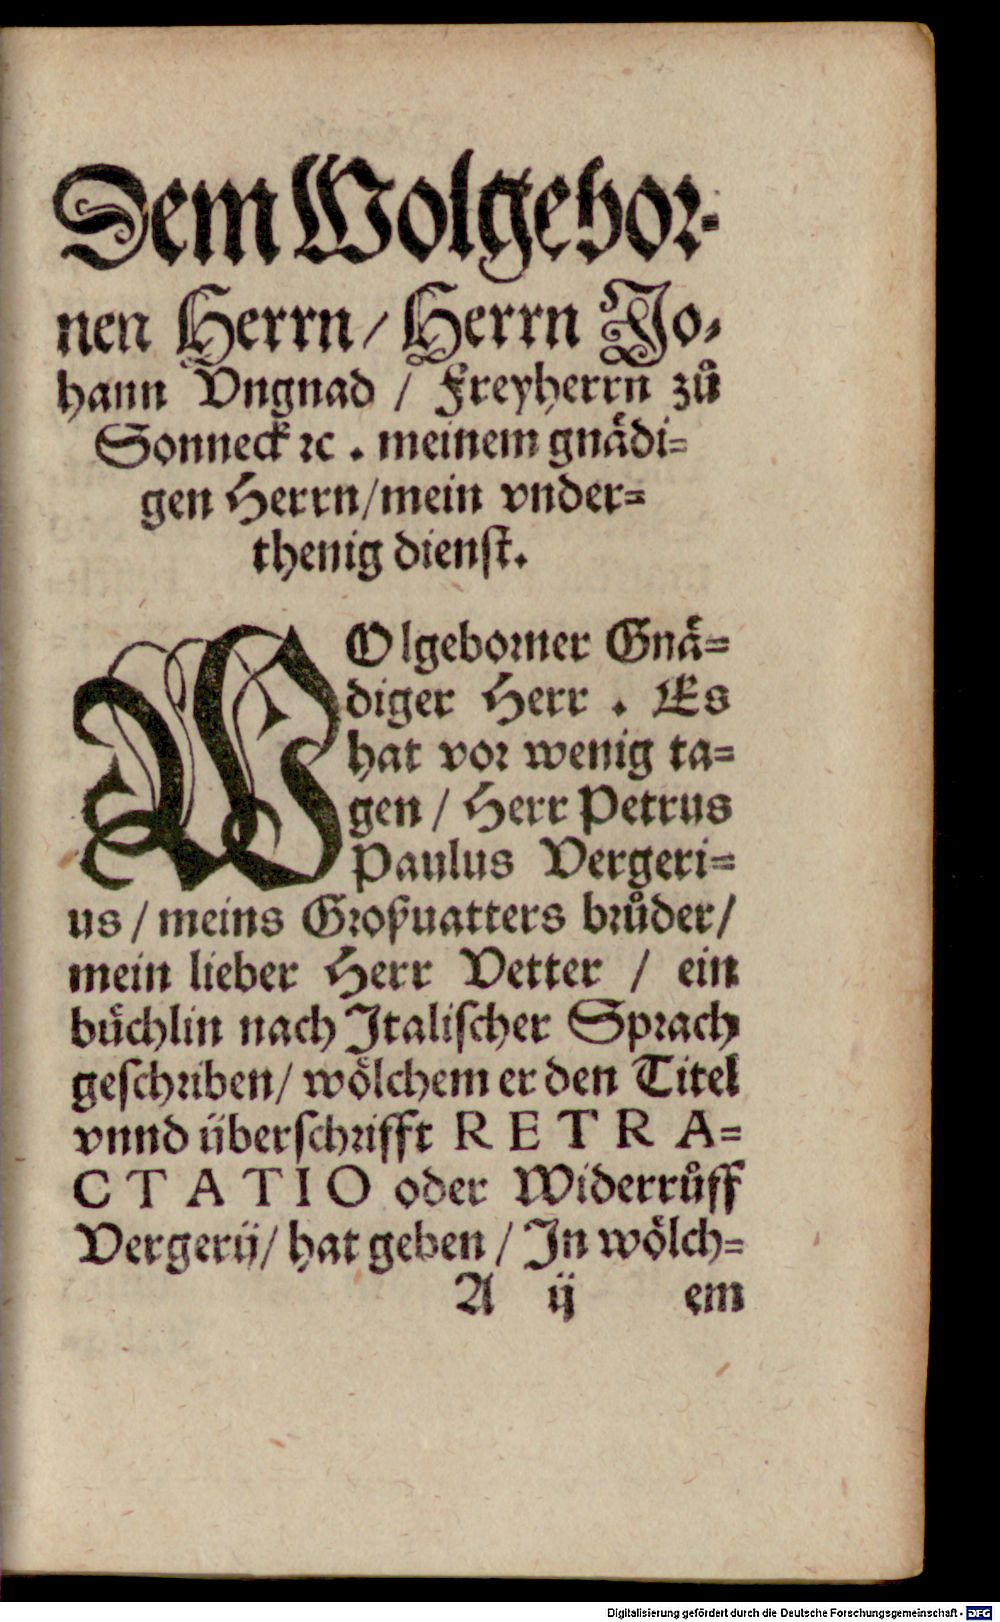 Dem Wolgebor-
nen Herrn / Herrn Jo-
hann Vngnad / Freyherrn zů
Sonneck ꝛc . meinem gnaͤdi-
gen Herrn / mein vnder-
thenig dienst.
WOlgeborner Gnaͤ-
diger Herr . Es
hat vor wenig ta-
gen / Herr Petrus
Paulus Vergeri-
us / meins Großuatters bruͦder /
mein lieber Herr Vetter / ein
buͤchlin nach Italischer Sprach
geschriben / woͤlchem er den Titel
vnnd uͤberschrifft RETRA-
CTATIO oder Widerruͦff
Vergerij / hat geben / In woͤlch-
A ij em
Digitalisierung gefördert durch die Deutsche Forschungsgemeinschaft - DFG